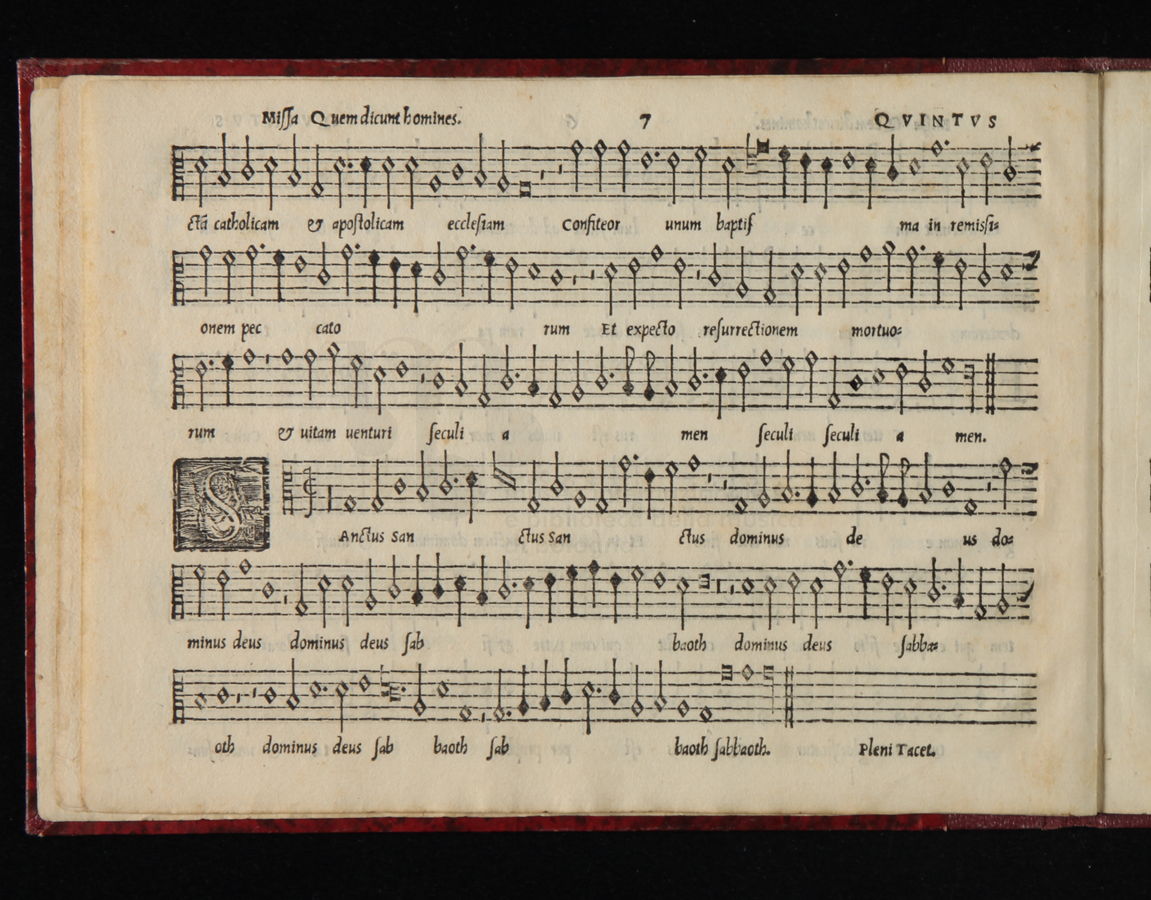 Missa Quem dicunt homines. 7 QVINTVS
ctā catholicam & apostolicam ecclesiam Confiteor unum baptis ma in remissi=
onem pec cato rum Et expecto resurrectionem mortuo=
rum & uitam uenturi seculi a men seculi seculi a men.
S Anctus San ctus San ctus dominus de us do=
minus deus dominus deus sab baoth dominus deus sabba=
oth dominus deus sab baoth sab baoth sabbaoth. Pleni Tacet.